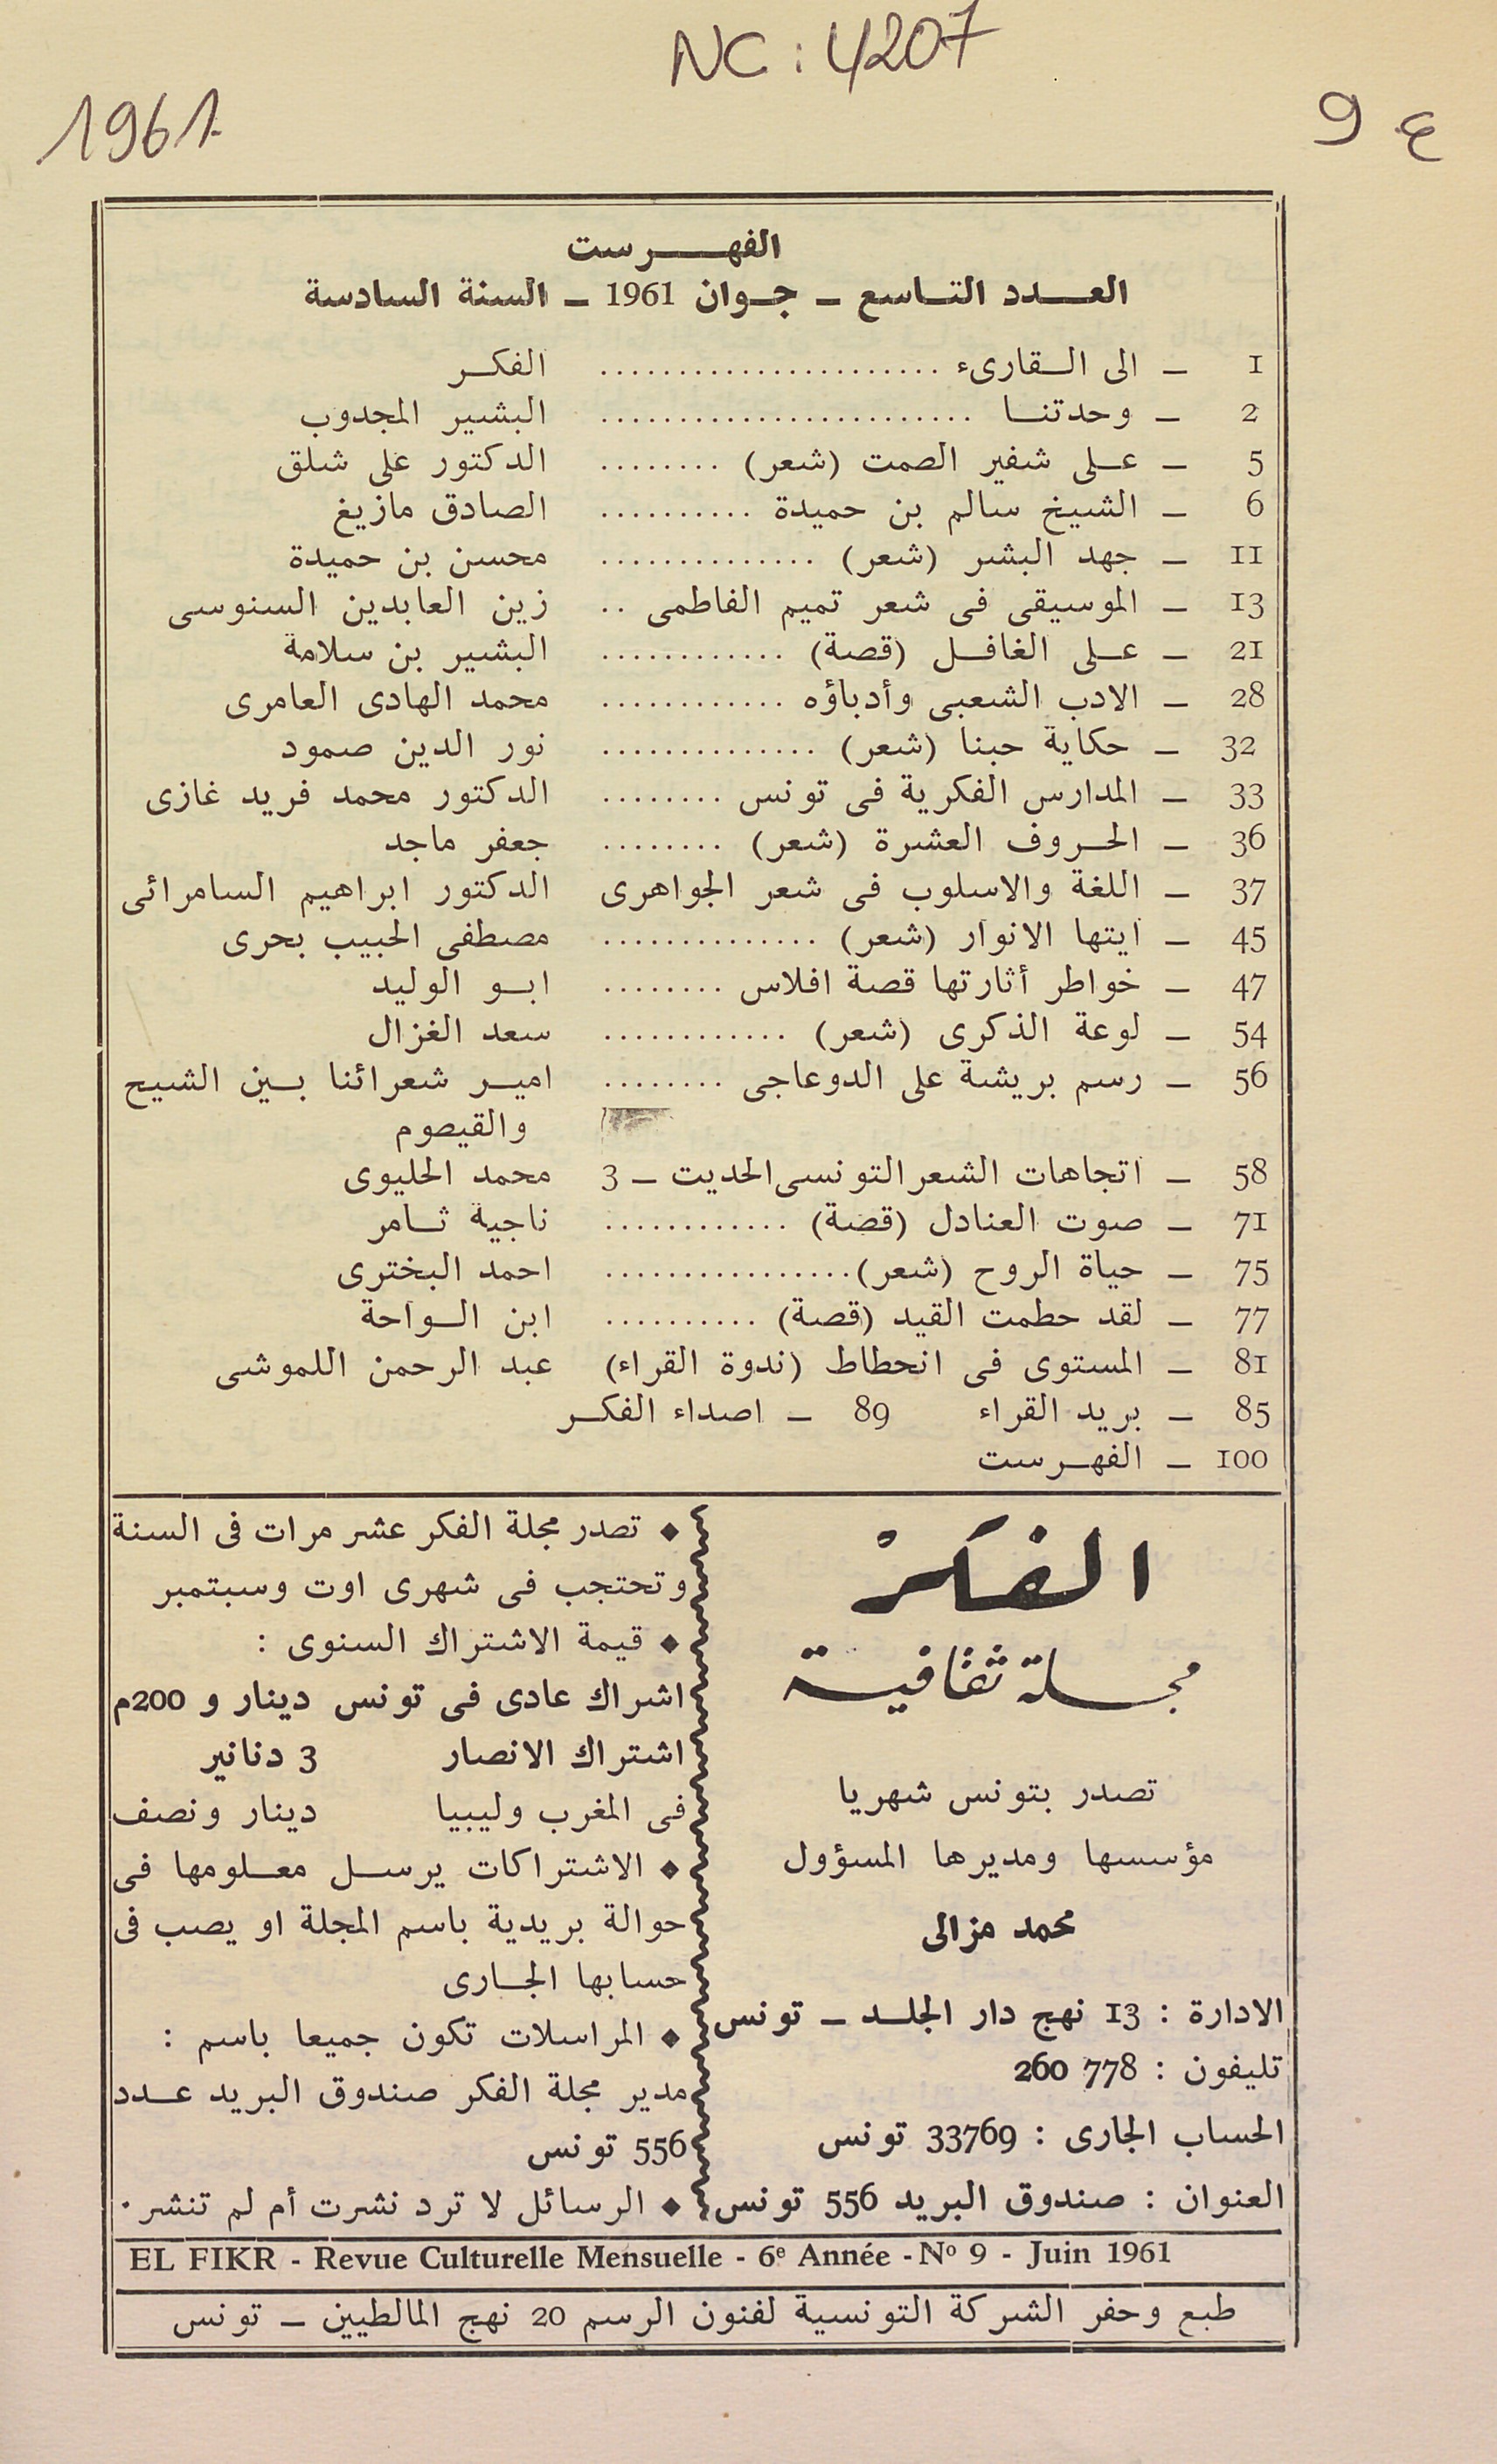 NC : 4207
1961
ع 9
الفهرست
العدد التاسع – جوان 1961 – السنة السادسة
1 – الى القارىء ...................... الفكر
2 – وحدتنا ........................ البشير المجدوب
5 – على شفير الصمت (شعر) ........ الدكتور على شلق
6 – الشيخ سالم بن حميدة .......... الصادق مازيغ
11 – جهد البشر (شعر) .............. محسن بن حميدة
13 – الموسيقى فى شعر تميم الفاطمى .. زين العابدين السنوسى
21 – على الغافل (قصة) ............ البشير بن سلامة
28 – الادب الشعبى وأدباؤه ............ محمد الهادى العامرى
32 – حكاية حبنا (شعر) .............. نور الدين صمود
33 – المدارس الفكرية فى تونس ........ الدكتور محمد فريد غازى
36 – الحروف العشرة (شعر) ........ جعفر ماجد
37 – اللغة والاسلوب فى شعر الجواهرى الدكتور ابراهيم السامرائى
45 – ايتها الانوار (شعر) .............. مصطفى الحبيب بحرى
47 – خواطر أثارتها قصة افلاس ........ ابو الوليد
54 – لوعة الذكرى (شعر) ............ سعد الغزال
56 – رسم بريشة على الدوعاجى ........ امير شعرائنا بين الشيح
والقيصوم
58 – اتجاهات الشعر التونسى الحديث – 3 محمد الحليوى
71 – صوت العنادل (قصة) ............ ناجية ثامر
75 – حياة الروح (شعر)................ احمد البخترى
77 – لقد حطمت القيد (قصة) .......... ابن الواحة
81 – المستوى فى انحطاط (ندوة القراء) عبد الرحمن اللموشى
85 – بريد القراء 89 – اصداء الفكر
100 – الفهرست
الفكر
مجلة ثقافية
تصدر بتونس شهريا
مؤسسها ومديرها المسؤول
محمد مزالى
الادارة : 13 نهج دار الجلد – تونس
تليفون : 778 260
الحساب الجارى : 33769 تونس
العنوان : صندوق البريد 556 تونس
◆ تصدر مجلة الفكر عشر مرات فى السنة
وتحتجب فى شهرى اوت وسبتمبر
◆ قيمة الاشتراك السنوى :
اشراك عادى فى تونس دينار و 200م
اشتراك الانصار 3 دنانير
فى المغرب وليبيا دينار ونصف
◆ الاشتراكات يرسل معلومها فى
حوالة بريدية باسم المجلة او يصب فى
حسابها الجارى
◆ المراسلات تكون جميعا باسم :
مدير مجلة الفكر صندوق البريد عدد
556 تونس
◆ الرسائل لا ترد نشرت أم لم تنشر.
EL FIKR - Revue Culturelle Mensuelle - 6e Année - No 9 - Juin 1961
طبع وحفر الشركة التونسية لفنون الرسم 20 نهج المالطيين – تونس